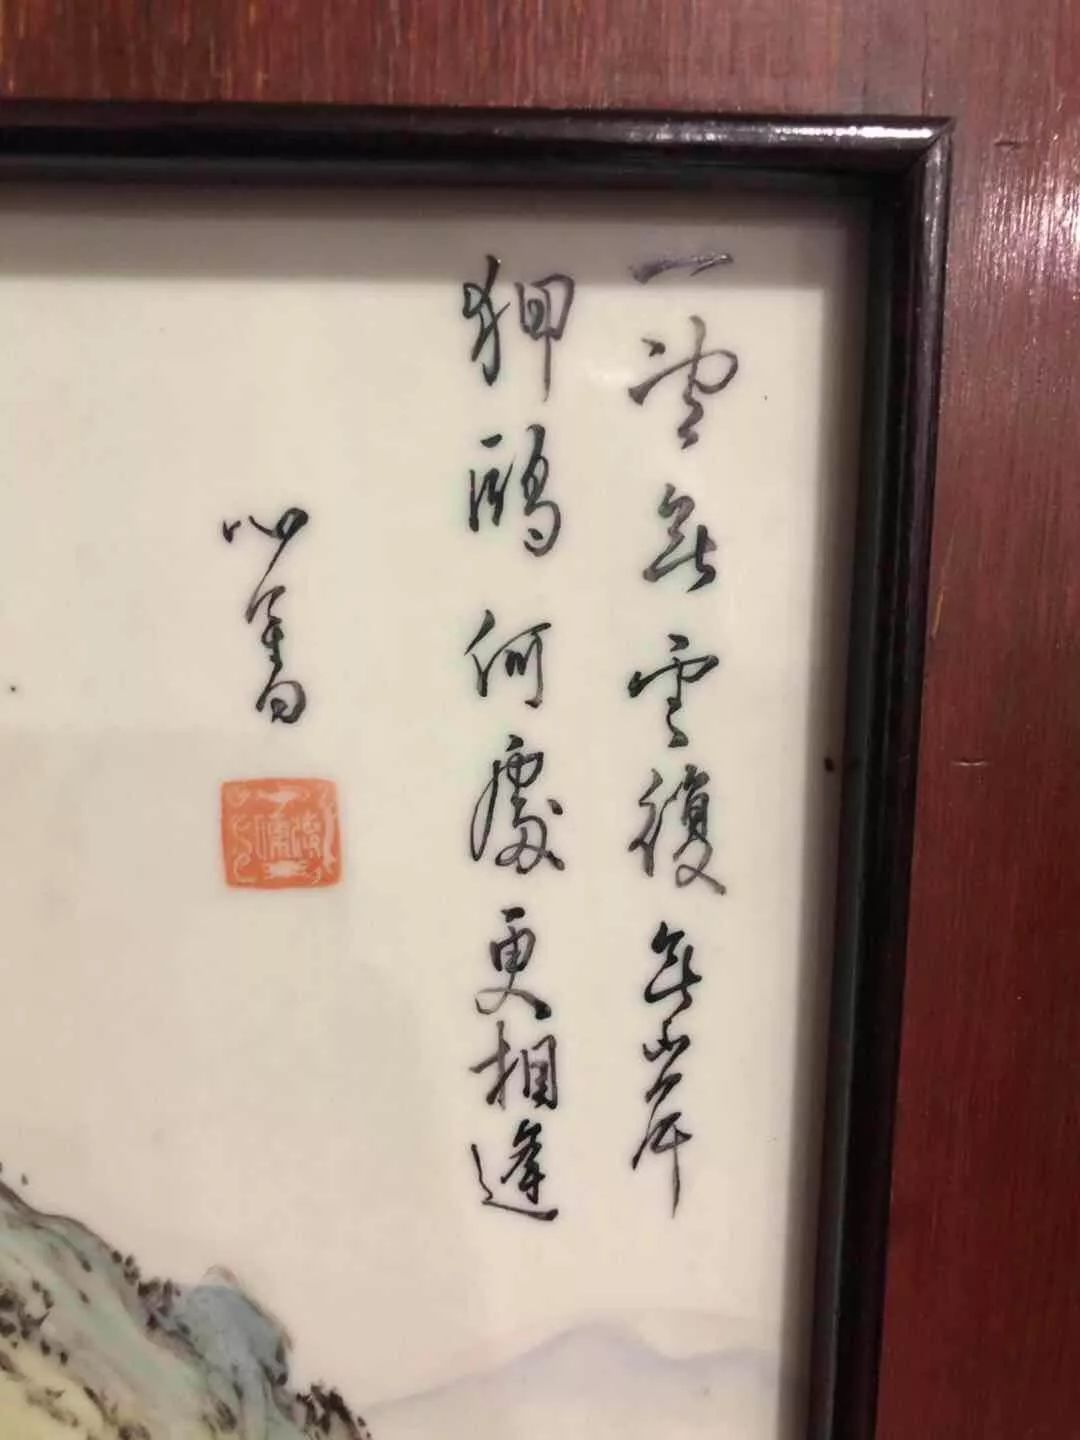 一望無雲復無岸
狎鷗何處更相逢
心畬
溥儒